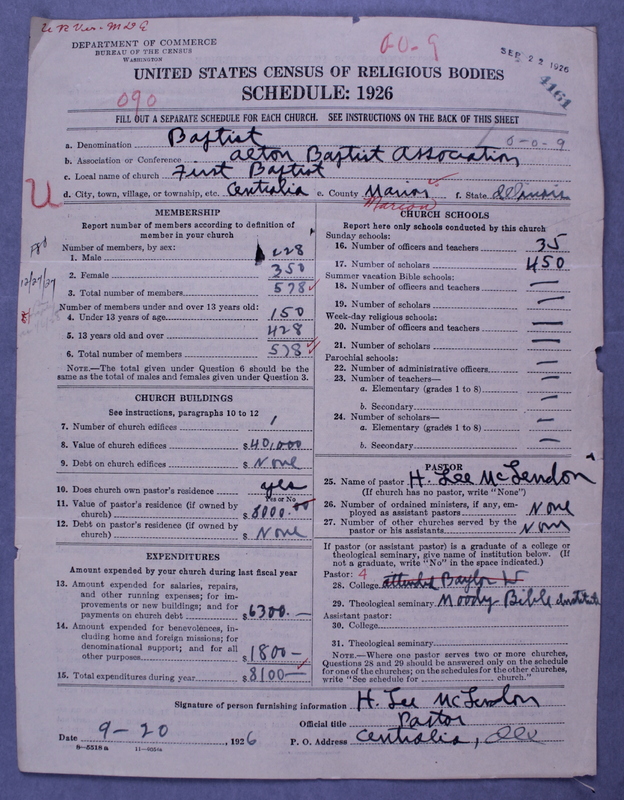 DEPARTMENT OF COMMERCE
BUREAU OF THE CENSUS
WASHINGTON
0-0-9
SEP 22 1926
4161
UNITED STATES CENSUS OF RELIGIOUS BODIES
SCHEDULE: 1926
090
FILL OUT A SEPARATE SCHEDULE FOR EACH CHURCH. SEE INSTRUCTIONS ON THE BACK OF THIS SHEET
a. Denomination Baptist 0-0-9
b. Association or Conference Alton Baptist Association
c. Local name of church First Baptist
U
d. City, town, village, or township, etc. Centralia e. County Marion f. State Illinois
Marion
MEMBERSHIP
Report number of members according to definition of member in your church
Number of members, by sex:
1. Male 228
2. Female 350
3. Total number of members 578
12/27/27
Number of members under and over 13 years old:
4. Under 13 years of age 150
5. 13 years old and over 428
6. Total number of members 578
NOTE.—The total given under Question 6 should be the
same as the total of males and females given under Question 3.
CHURCH BUILDINGS
See instructions, paragraphs 10 to 12
7. Number of church edifices 1
8. Value of church edifices $40,000
9. Debt on church edifices $ None
10. Does church own pastor's residence yes
Yes or No
11. Value of pastor's residence (if owned by
church) $8000.00
12. Debt on pastor's residence (if owned by
church) $ None
EXPENDITURES
Amount expended by your church during last fiscal year
13. Amount expended for salaries, repairs,
and other running expenses; for im-
provements or new buildings; and for
payments on church debt $6300.—
14. Amount expended for benevolences, in-
cluding home and foreign missions; for
denominational support; and for all
other purposes $1800—
15. Total expenditures during year $8100—
CHURCH SCHOOLS
Report here only schools conducted by this church
Sunday schools:
16. Number of officers and teachers 35
17. Number of scholars 450
Summer vacation Bible schools:
18. Number of officers and teachers —
19. Number of scholars —
Week-day religious schools:
20. Number of officers and teachers —
21. Number of scholars —
Parochial schools:
22. Number of administrative officers —
23. Number of teachers—
a. Elementary (grades 1 to 8) —
b. Secondary —
24. Number of scholars—
a. Elementary (grades 1 to 8) —
b. Secondary —
PASTOR
25. Name of pastor H. Lee McLendon
(If church has no pastor, write "None")
26. Number of ordained ministers, if any, em-
ployed as assistant pastors None
27. Number of other churches served by the
pastor or his assistants None
If pastor (or assistant pastor) is a graduate of a college or
theological seminary, give name of institution below. (If
not a graduate, write "No" in the space indicated.)
Pastor: 4
28. College attended Baylor U
29. Theological seminary Moody Bible Institute
Assistant pastor:
30. College
31. Theological seminary
NOTE.—Where one pastor serves two or more churches,
Questions 28 and 29 should be answered only on the schedule
for one of the churches; on the schedules for the other churches,
write "See schedule for church."
Signature of person furnishing information H. Lee McLendon
Official title Pastor
Date 9-20, 1926 P. O. Address Centralia, Ill
8—5518a